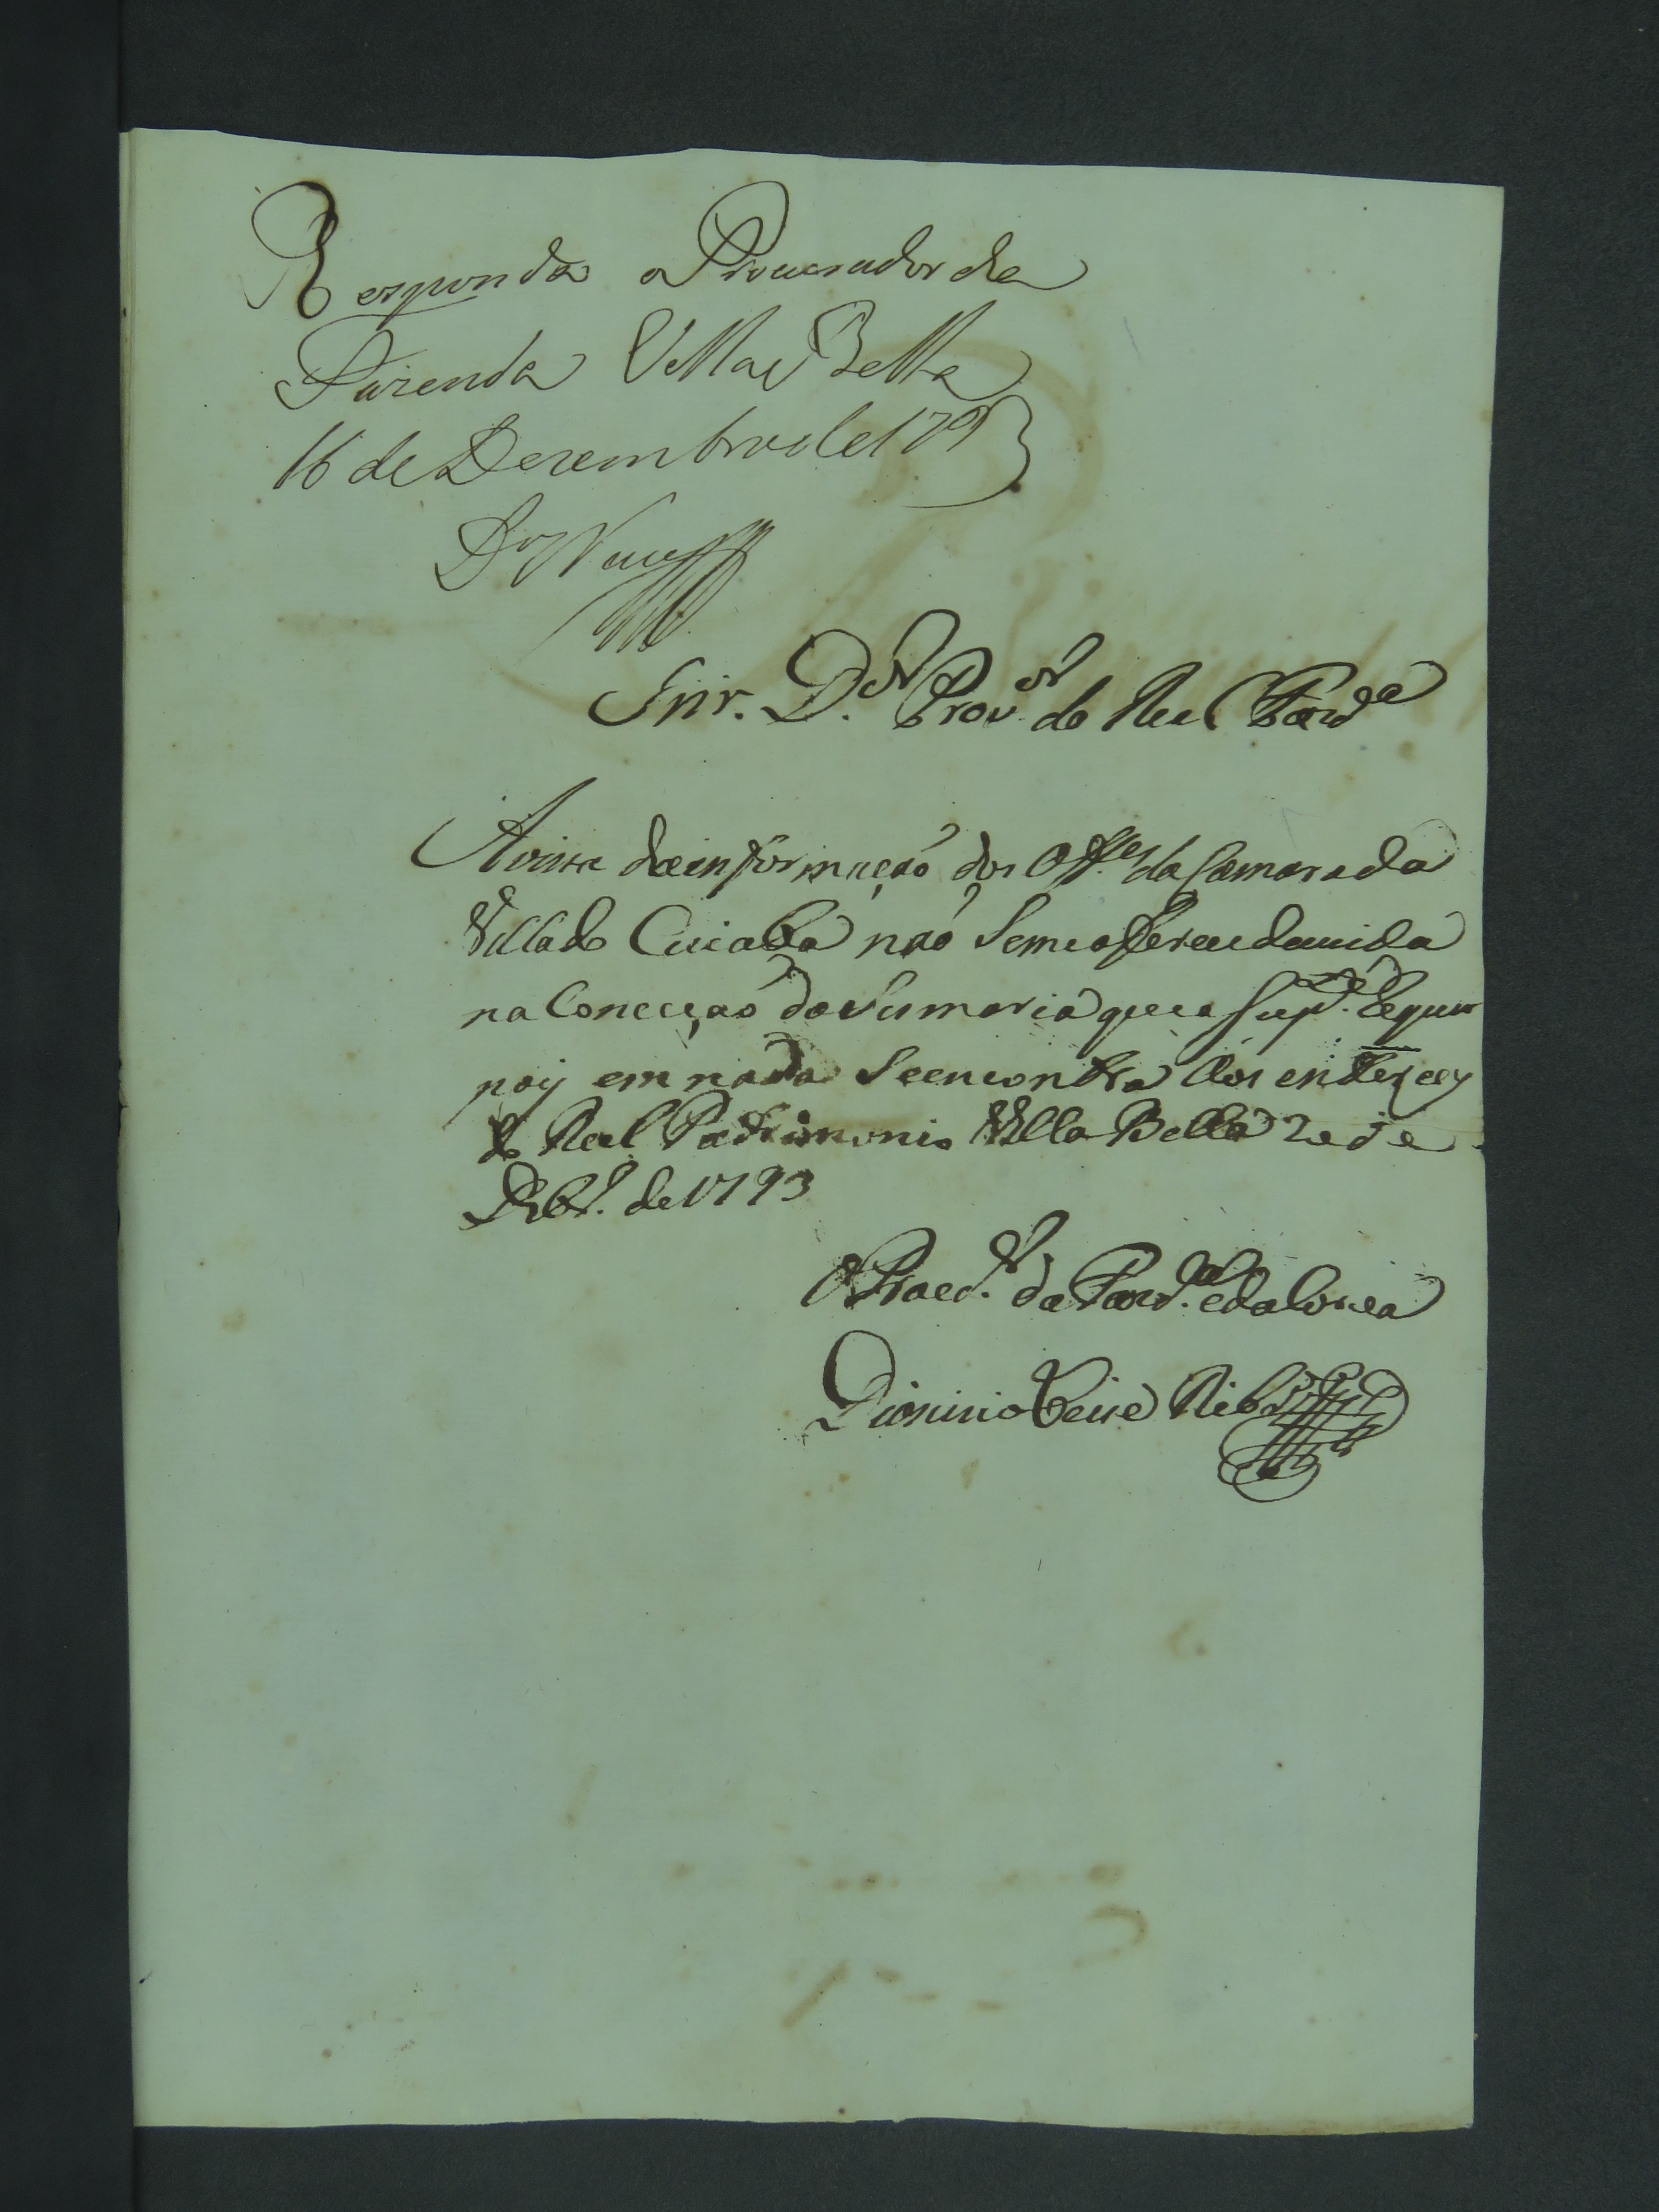 Responda o Procurador da
Fazenda Villa Bella
16 de Dezembro de 1793
D.or
Snr. D.or Prov.or da Real Fazd.a
A vista da informaçaõ dos Off.es da Camara da
Villa do Cuiaba naõ Se me offerece duvida
na Conceçaõ da Sismaria que a Sup.e Requer
pois em nada Se encontra aos enterecez
do Real Patrimonio Villa Bella de
Dzbr.o de 1793
O Procd.or da Fazd.a e da Coroa
Dionizio